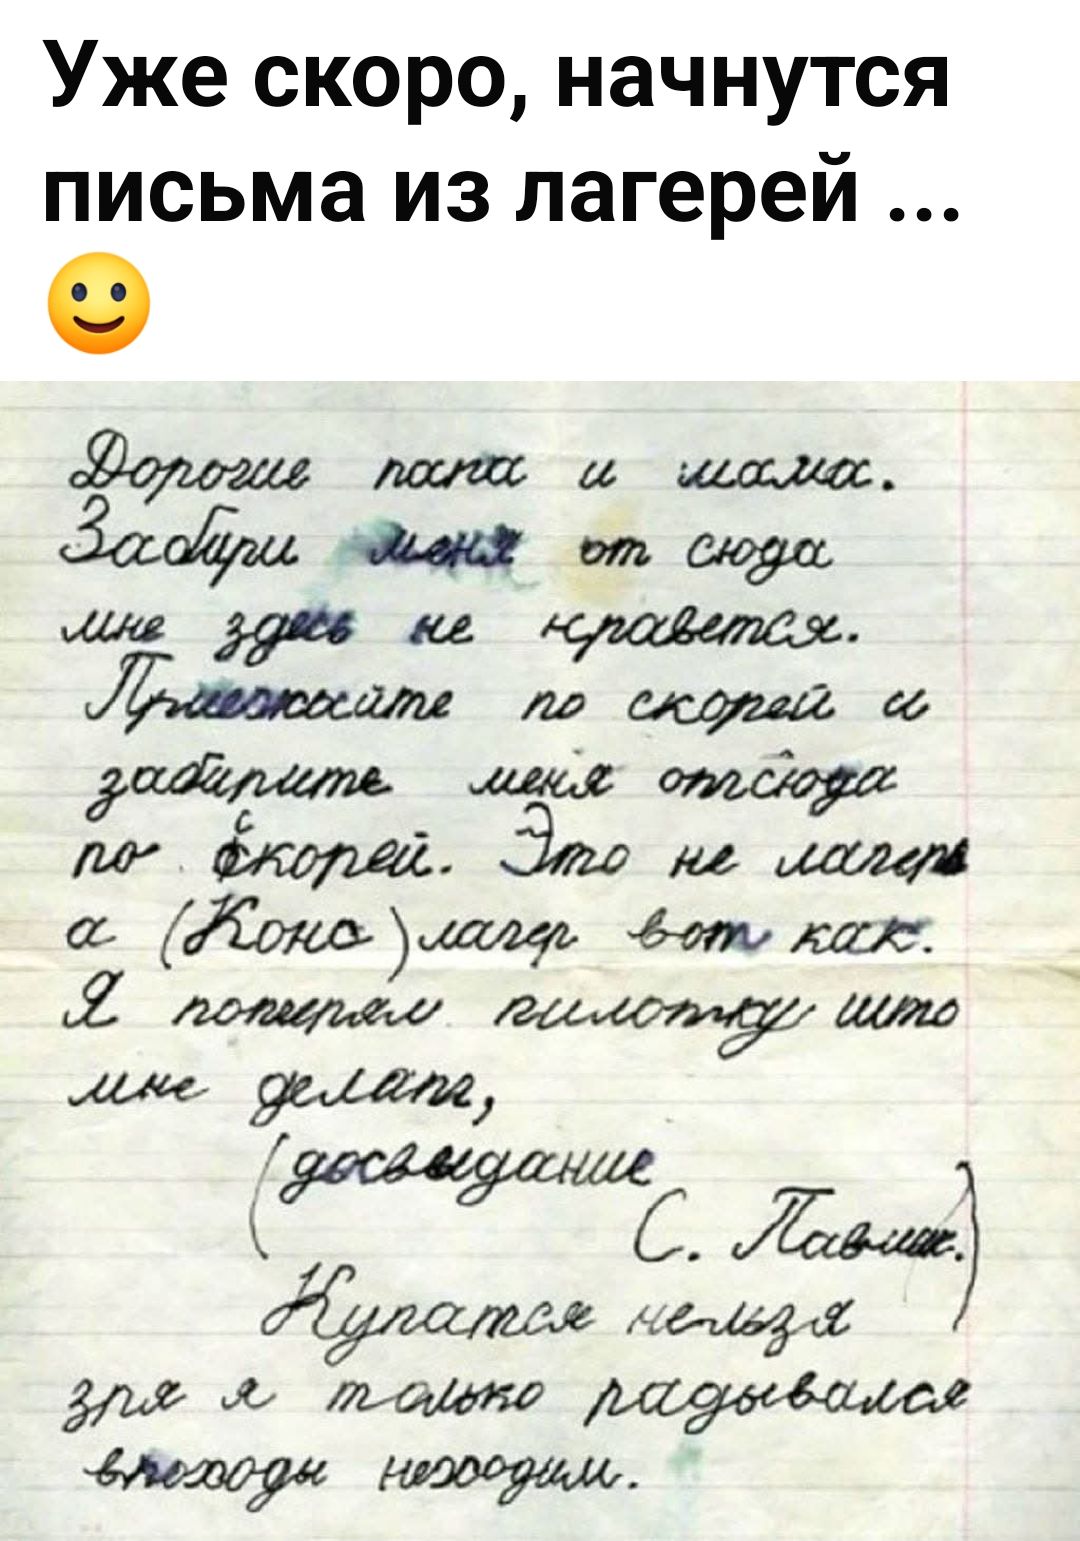 Уже скоро, начнутся
письма из лагерей ...
Дорогие папа и мама.
Забири меня от сюда
мне здесь не нравется.
Приезжайте по скорей и
забирите меня отсюда
по скорей. Это не лагерь
а (Конс)лагер вот как.
Я потерял пилотку што
мне делать,
(досвидание
С. Павлик.)
Купатся нельзя
зря я только радывался
впоходы неходим.